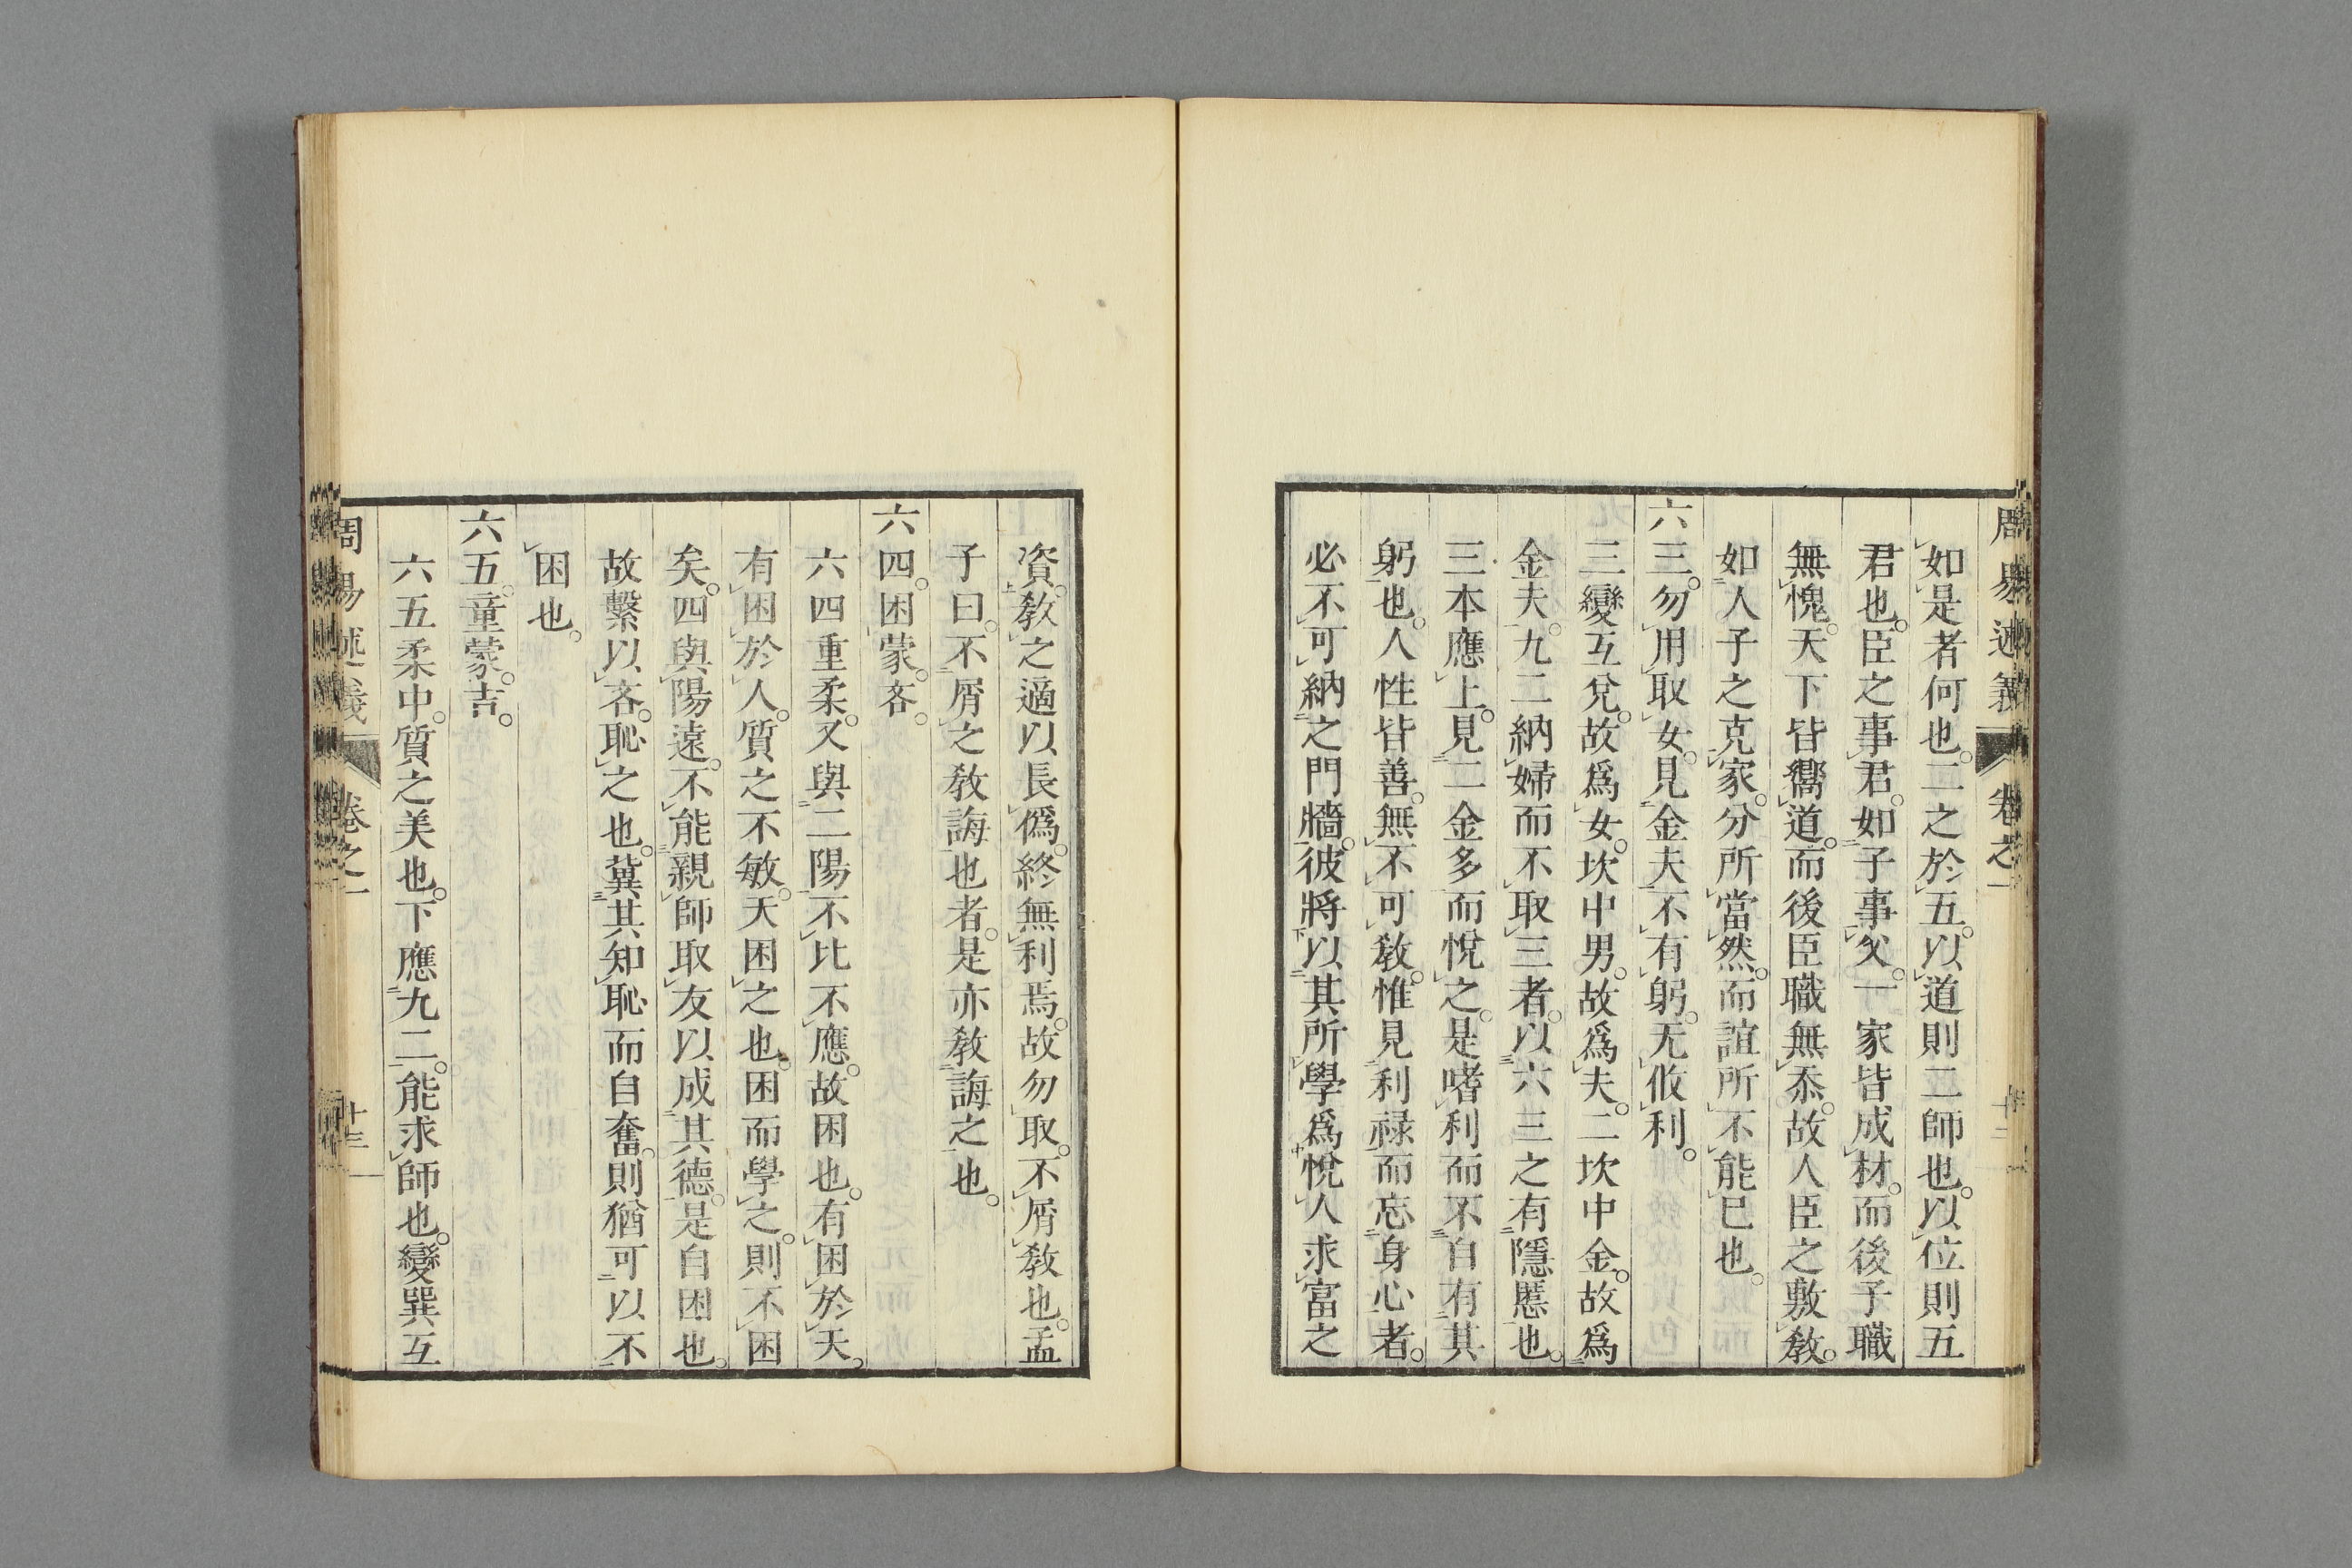 周易述義 卷之一 十二
如是者何也。二之於五。以道則二師也。以位則五
君也。臣之事君。如子事父。一家皆成材。而後子職
無愧。天下皆嚮道。而後臣職無忝。故人臣之敷教。
如人子之克家。分所當然。而誼所不能已也。
六三。勿用取女。見金夫。不有躬。无攸利。
三變互兌。故爲女。坎中男。故爲夫。二坎中金。故爲
金夫。九二納婦而不取三者。以六三之有隱慝也。
三本應上。見二金多而悅之。是嗜利而不自有其
躬也。人性皆善。無不可教。惟見利祿而忘身心者。
必不可納之門牆。彼將以其所學爲悅人求富之
資。教之適以長僞。終無利焉。故勿取。不屑教也。孟
子曰。不屑之教誨也者。是亦教誨之也。
六四。困蒙。吝。
六四重柔。又與二陽不比不應。故困也。有困於天。
有困於人。質之不敏。天困之也。困而學之。則不困
矣。四與陽遠。不能親師取友以成其德。是自困也。
故繫以吝。恥之也。冀其知恥而自奮。則猶可以不
困也。
六五。童蒙。吉。
六五柔中。質之美也。下應九二。能求師也。變巽互
周易述義 卷之一 十三